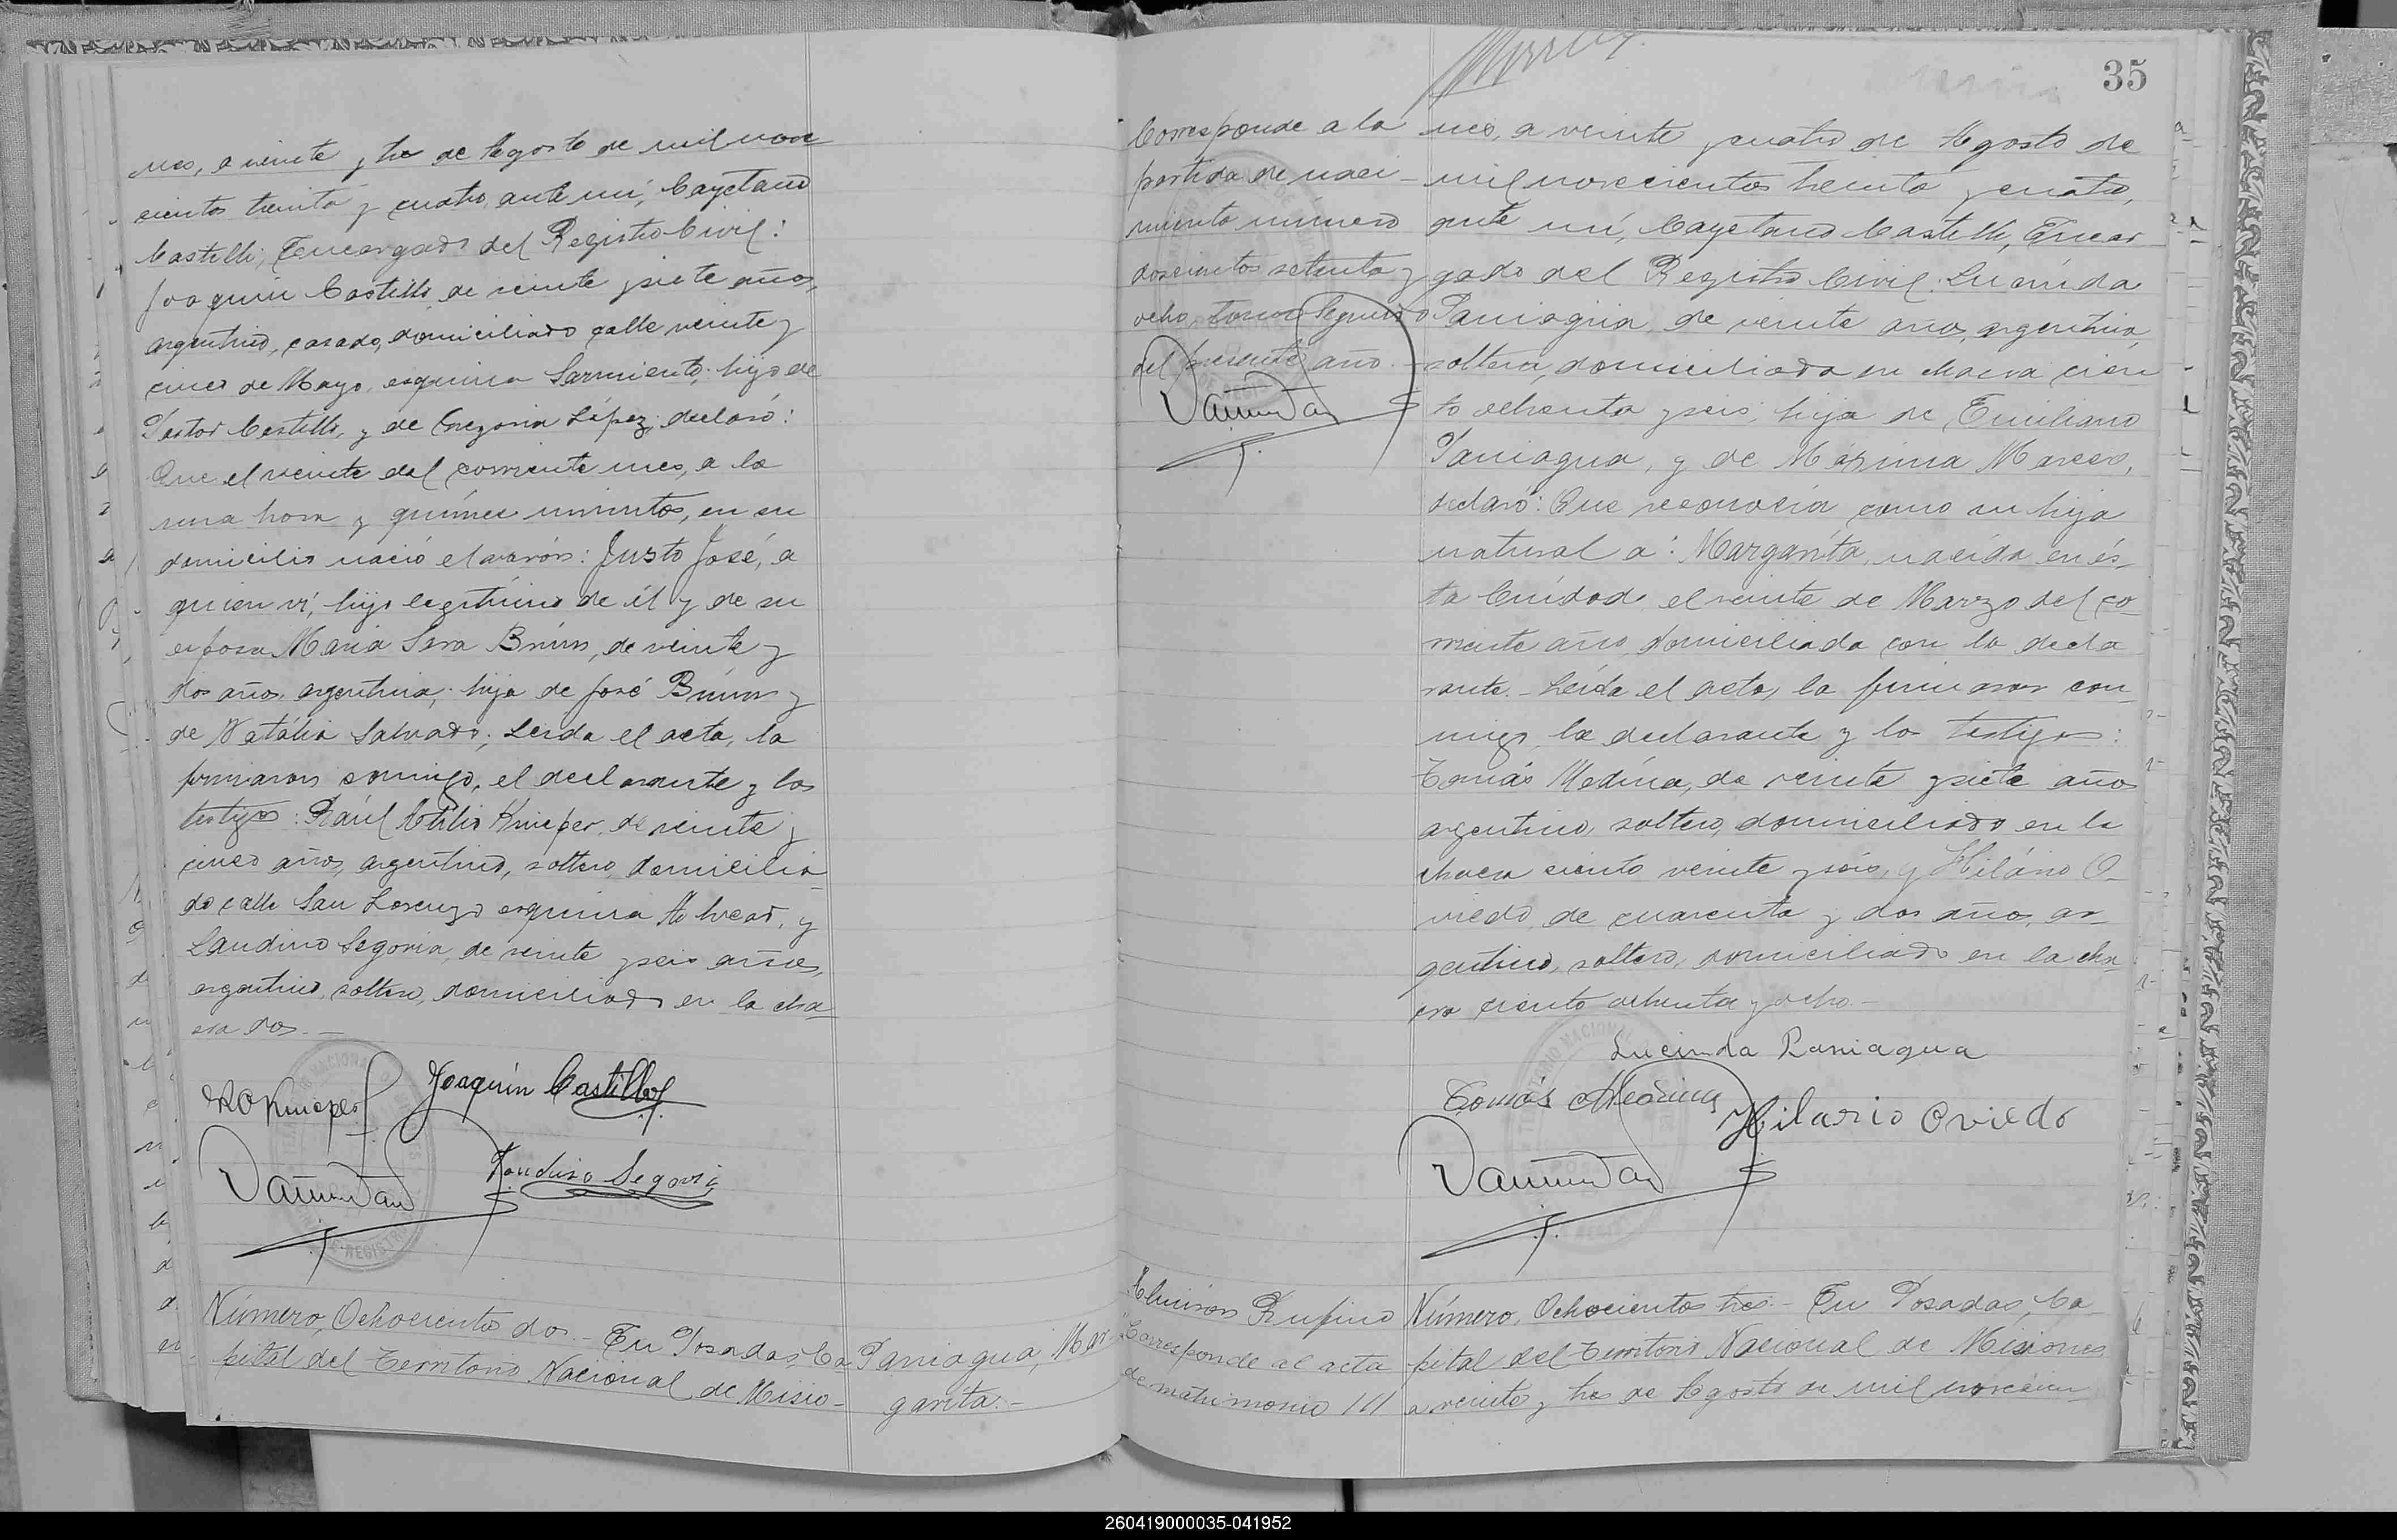 nes, a veinte y tres de Agosto de mil nove
cientos treinta y cuatro, ante mí, Cayetano
Castelli, Encargado del Registro Civil:
Joaquin Castillo, de veinte y siete años,
argentino, casado, domiciliado calle veinte y
cinco de Mayo, esquina Sarmiento; hijo de
Pastor Castillo, y de Gregoria López; declaró:
Que el veinte del corriente mes, a la
una hora y quince minutos, en su
domicilio nació el varón: Justo José, a
quien ví, hijo legítimo de él y de su
esposa Maria Sara, de veinte y
dos años, argentina; hija de José y
de Natália Salvado; Leída el acta, la
firmaron conmigo, el declarante y los
testigos: Raúl Otilio Knieper, de veinte y
cinco años, argentino, soltero, domicilia
do calle San Lorenzo esquina Alvear, y
Laudino Segovia, de veinte y seis años,
argentino, soltero, domiciliado en la cha
cra dos.—
Joaquín Castillo
Laudino Segovia
Número, Ochocientos dos.— En Posadas, Ca
pital del Territorio Nacional de Misio-
Paniagua, Mar-
garita.—
35
Corresponde a la
partida de naci-
miento número
doscientos setenta y
ocho, tomo Segundo
del presente año.—
nes, a veinte y cuatro de Agosto de
mil novecientos treinta y cuatro,
ante mí, Cayetano Castelli, Encar
gado del Registro Civil: Lucínda
Paniagua, de veinte años, argentina,
soltera, domiciliada en chacra cien
to ochenta y seis; hija de Emiliano
Paniagua, y de Máxima Mareco,
declaró: Que reconocía como su hija
natural a: Margaríta, nacída en és-
ta Ciudad, el veinte de Marzo del co-
rriente año, domiciliada con la decla
rante.— Leída el acta, la firmaron con-
migo, la declarante y los testigos:
Tomás Medína, de veinte y siete años
argentino, soltero, domiciliado en la
chacra ciento veinte y seis, y Hilário O-
viedo, de cuarenta y dos años, ar
gentino, soltero, domiciliado en la cha
cra ciento ochenta y ocho.—
Lucinda Paniagua
Tomás Medina
Hilario Oviedo
Rufino
Corresponde al acta
de matrimonio 111
Número, Ochocientos tres.— En Posadas, Ca
pital del Territorio Nacional de Misiones
a veinte y tres de Agosto de mil novecien
260419000035-041952